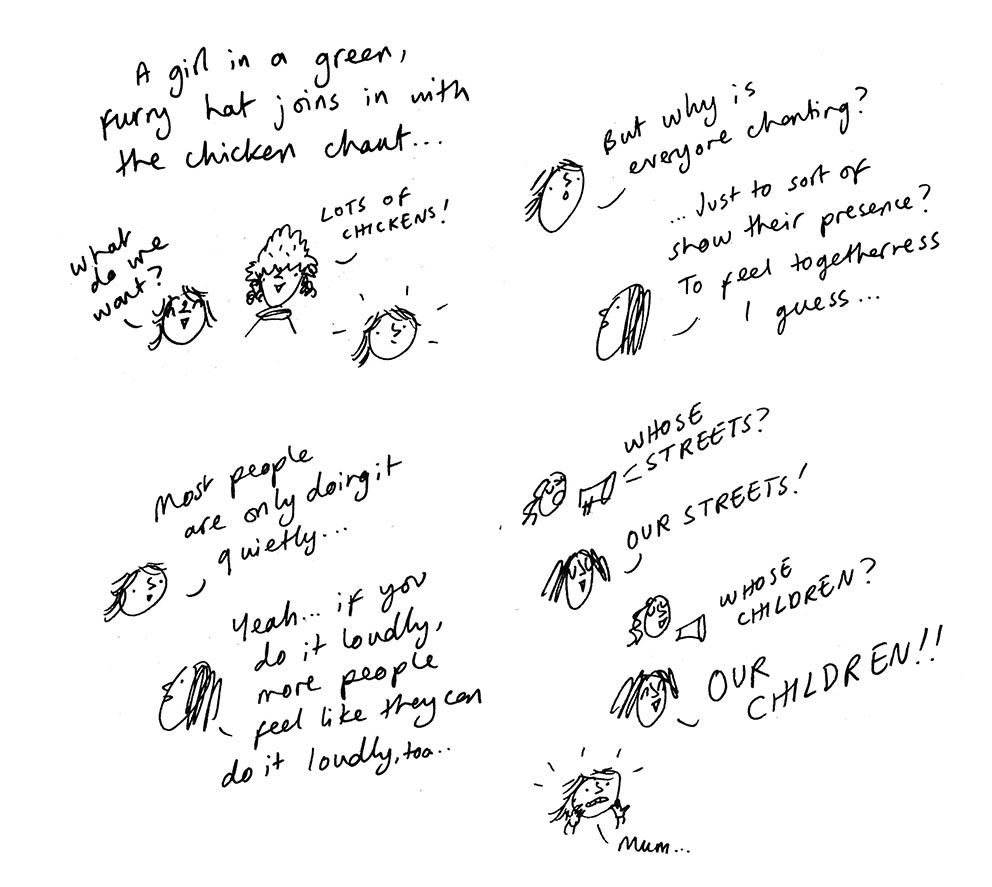 A girl in a green,
furry hat joins in with
the chicken chant...
What
do we
want?
LOTS OF
CHICKENS!
But why is
everyone chanting?
...Just to sort of
show their presence?
To feel togetherness
I guess...
Most people
are only doing it
quietly...
Yeah... if you
do it loudly,
more people
feel like they can
do it loudly, too..
WHOSE
STREETS?
OUR STREETS!
WHOSE
CHILDREN?
OUR
CHILDREN!!
Mum...